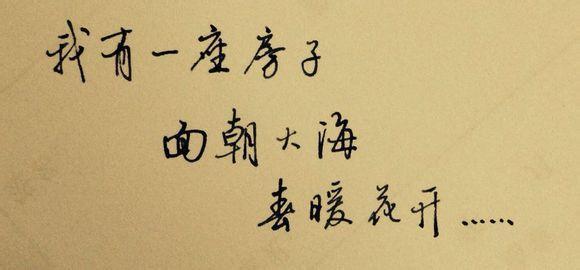 我有一座房子
面朝大海
春暖花开……